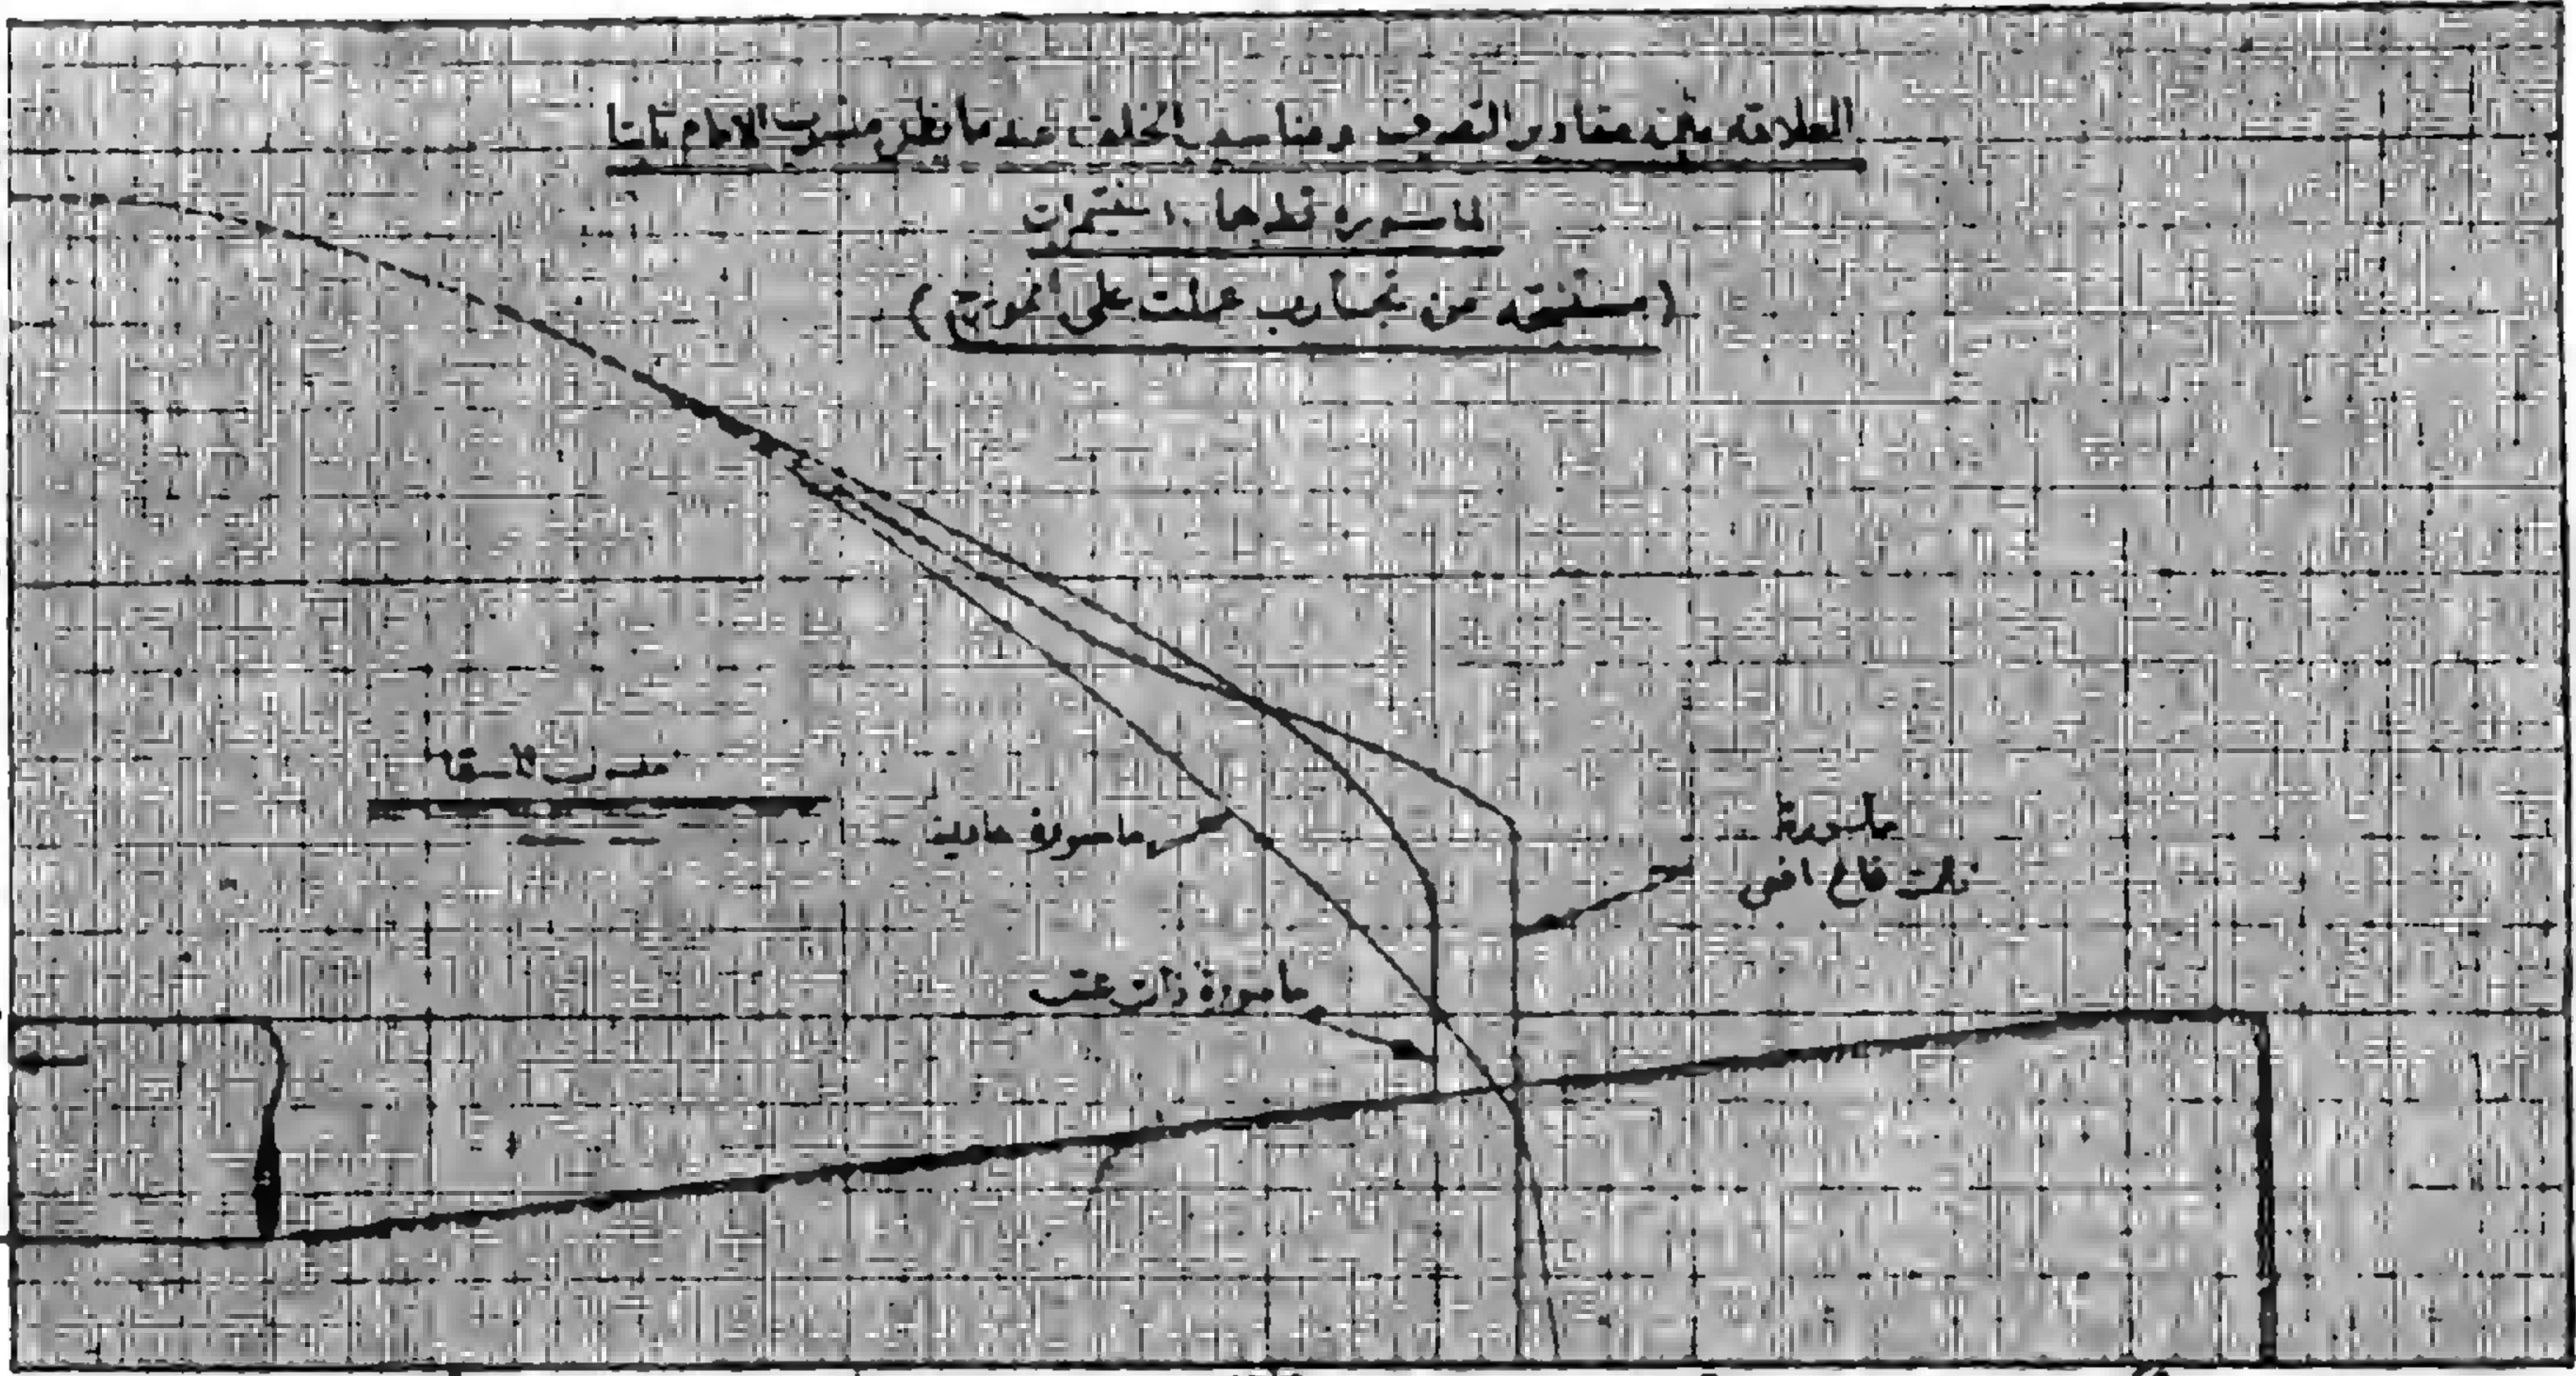 العلاقة بين مقادير التصرف ومناسيب الخلف عندما يظل منسوب الامام ثابتا
لماسورة قطرها ١٠ سنتيمترات
(مستنتجه من تجارب عملت على النموذج)
ماسورة عادية
ماسورة
ذات قاع افقى
ماسورة ذات عتب